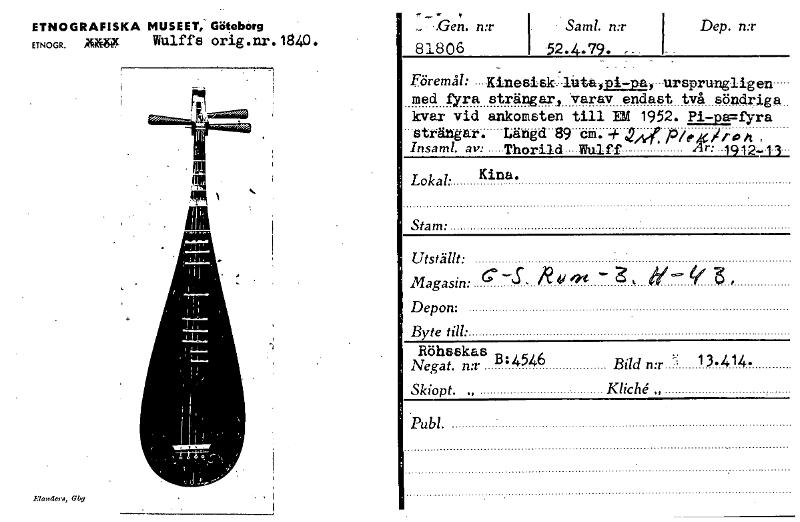 ETNOGRAFISKA MUSEET, Göteborg
ETNOGR. Wulffs orig.nr. 1840.
Elanders, Gbg
Gen. n:r Saml. n:r Dep. n:r
81806 52.4.79.
Föremål: Kinesisk luta,pi-pa, ursprungligen
med fyra strängar, varav endast två söndriga
kvar vid ankomsten till EM 1952. Pi-pa=fyra
strängar. Längd 89 cm. + 2 st. Plektron.
Insaml. av: Thorild Wulff År: 1912-13
Lokal: Kina.
Stam:
Utställt:
Magasin: G-S. Rum-3. H-43.
Depon:
Byte till:
Röhsskas
Negat. n:r B:4546 Bild n:r 13.414.
Skiopt. „ Kliché „
Publ.